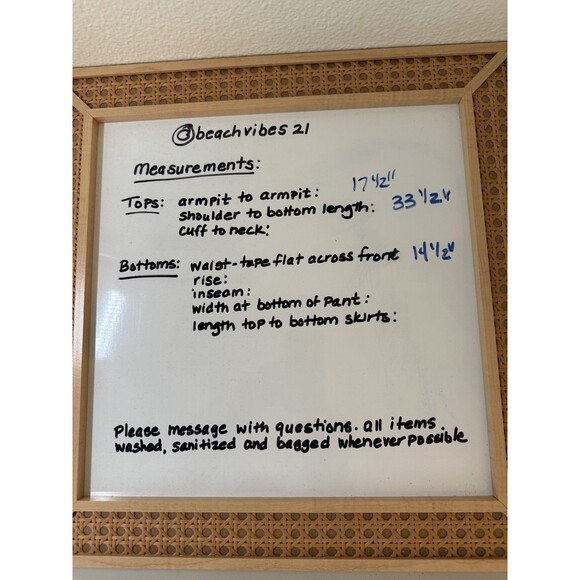 @beachvibes 21
Measurements:
Tops: armpit to armpit: 17 1/2"
shoulder to bottom length: 33 1/2"
cuff to neck:
Bottoms: waist-tape flat across front 14 1/2"
rise:
inseam:
width at bottom of pant:
length top to bottom skirts:
Please message with questions. all items
washed, sanitized and bagged whenever possible